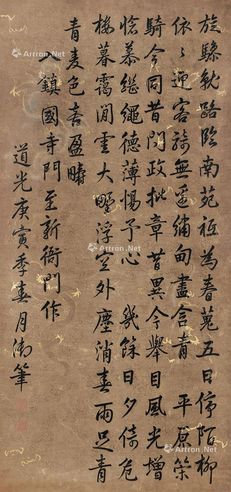 旋驂軟路臨南苑祗為春蒐五日停陌柳
依〻迎客騎無邊綉甸盡含青 平原策
騎今同昔門政批章昔異今舉目風光增
愴慕繼繩德薄惕予心 幾餘日夕倚危
樓暮靄閒雲大野浮空外塵消春雨足青
青麥色喜盈疇
鎮國寺門至新衙門作
道光庚寅季春月御筆
Artron.Net
Artron.Net
Artron.Net
Artron.Net